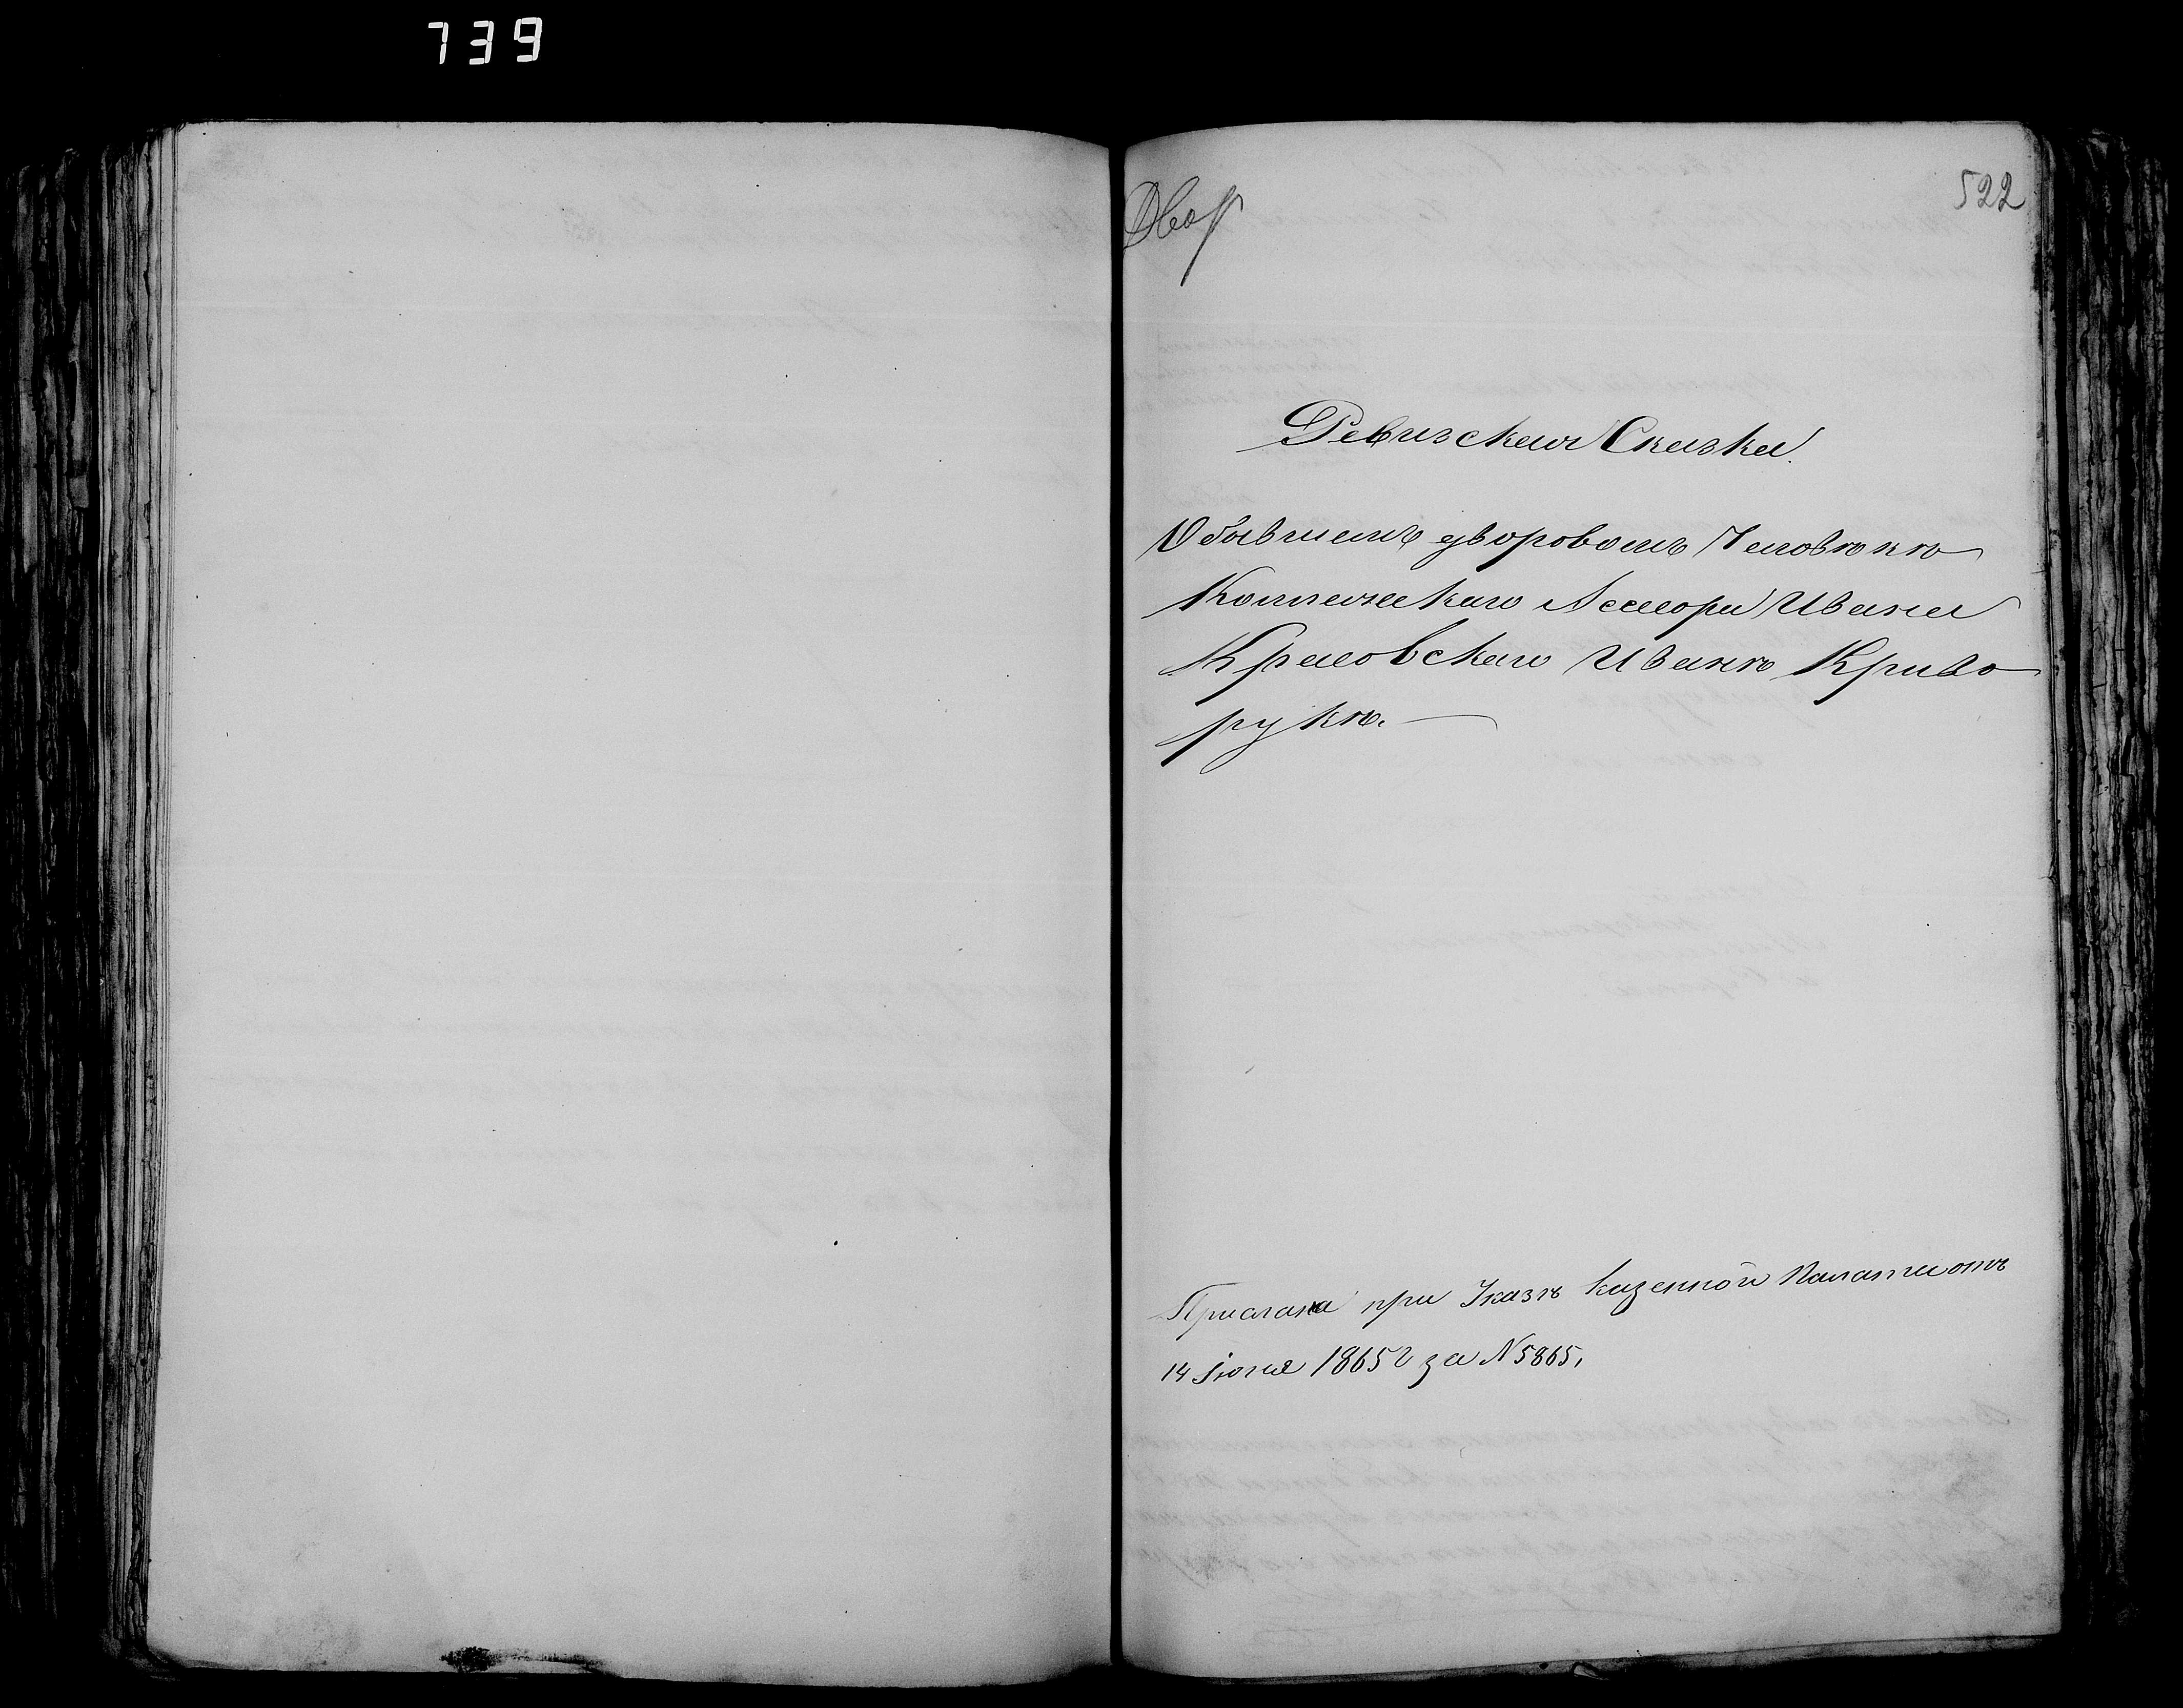 739
522
Двор
Ревизская Сказка.
О бывшемъ дворовомъ Человѣкѣ
Коллежскаго Ассесора Ивана
Красовскаго Иванѣ Криво
рукѣ.
Прислана при Указѣ казенной Палаты отъ
14 Іюня 1865 г за N 5865,